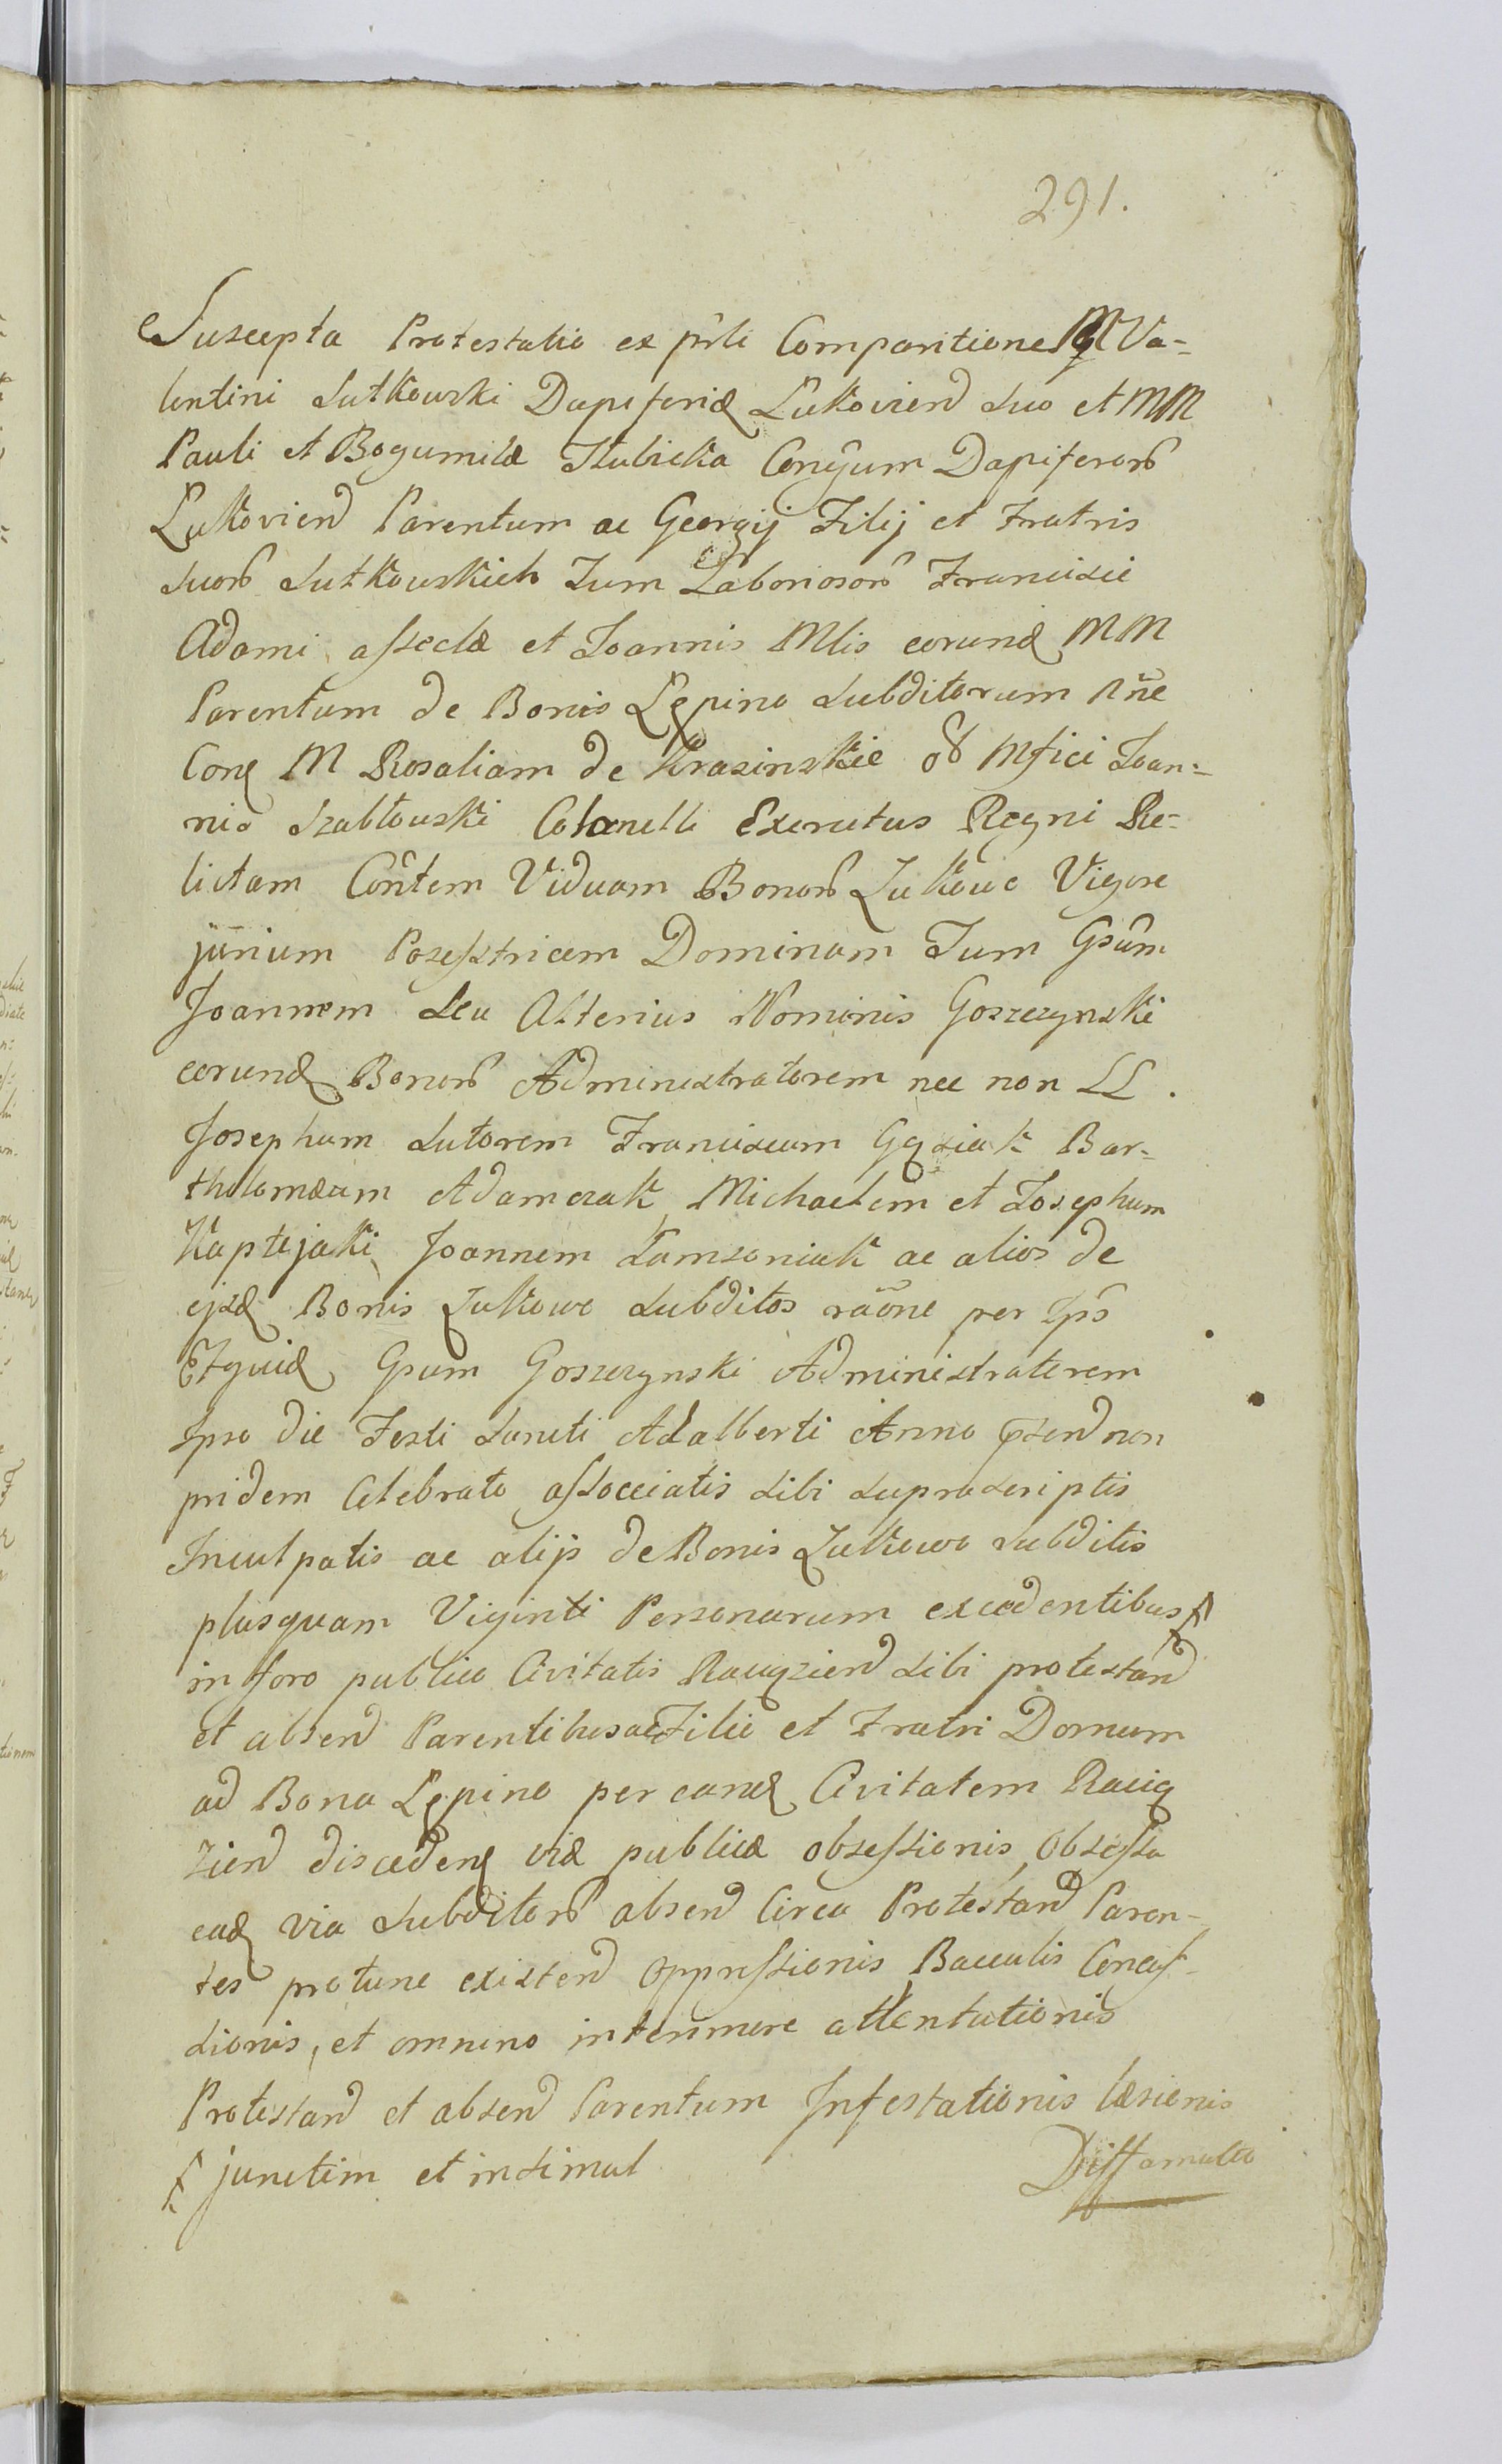 291.
Suscepta Protestatio ex pñli Comparitione M Va-
lentini Sutkowski Dapiferidæ Łukovien Suo et MM
Pauli et Bogumilæ Słubicka Conjûum Dapiferor
Łukovien Parentum ac Georgij Filij et Fratris
Suor Sutkowskich Tum Laboriosor Francisci
Adami, assectæ et Joannis Mlis eorund MM
Parentum de Bonis Lępino Subditorum Nñe
Con M Rosaliam de Krasinskie oł Mfici Joan-
nis Szabłowski Colonelli Exercitus Regni Re-
lictam Coñtem Viduam Bonor Żukowo Vigore
jurium Possestricem Dominam Tum Gsûm
Joannem Seu Alterius Nominis Goszczynski
eorund Bonor Administratorem nec non LL.
Josephum Sutorem Franciscum Gąsiak Bar-
tholomæum Adamczak, Michaelem et Josephum
Kaptejaki, Joannem Samsoniak ac alios de
ejsd Bonis Żukowo Subditos rãone per Ips
Etquid Gsum Goszczynski Administratorem
Ipso die Festi Sancti Adalberti Anno psend non
pridem Celebrato associatis Sibi Suprascriptis
Inculpatis ac alijs de Bonis Żukowo Subditis
plusquam Viginti Personarum excedentibus
in foro publico Civitatis Raciązien Sibi protestan
et absen Parentibus ac Filio et Fratri Domum
ad Bona Lępino per eand Civitatem Racią
zien disceden viæ publicæ obsessionis, Obsessa
ead via Subditor absen Circa Protestan Paren-
tes protunc existen oppressionis, Baculis Concus-
sionis, et omnino interimere attentationis
Protestan et absen Parentum Infestationis læsionis
junctim et insimul
Diffamatio